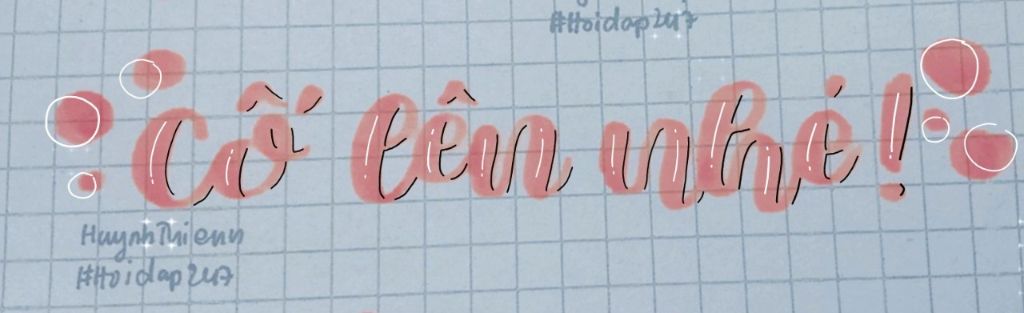 #Hoidap247
Cố lên nhé!
HuynhThienn
#Hoidap247